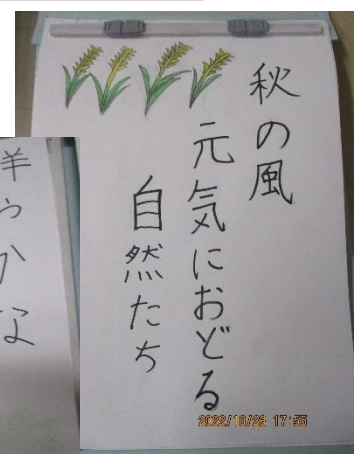 秋の風
元気におどる
自然たち
2022/10/28 17:55
うかな